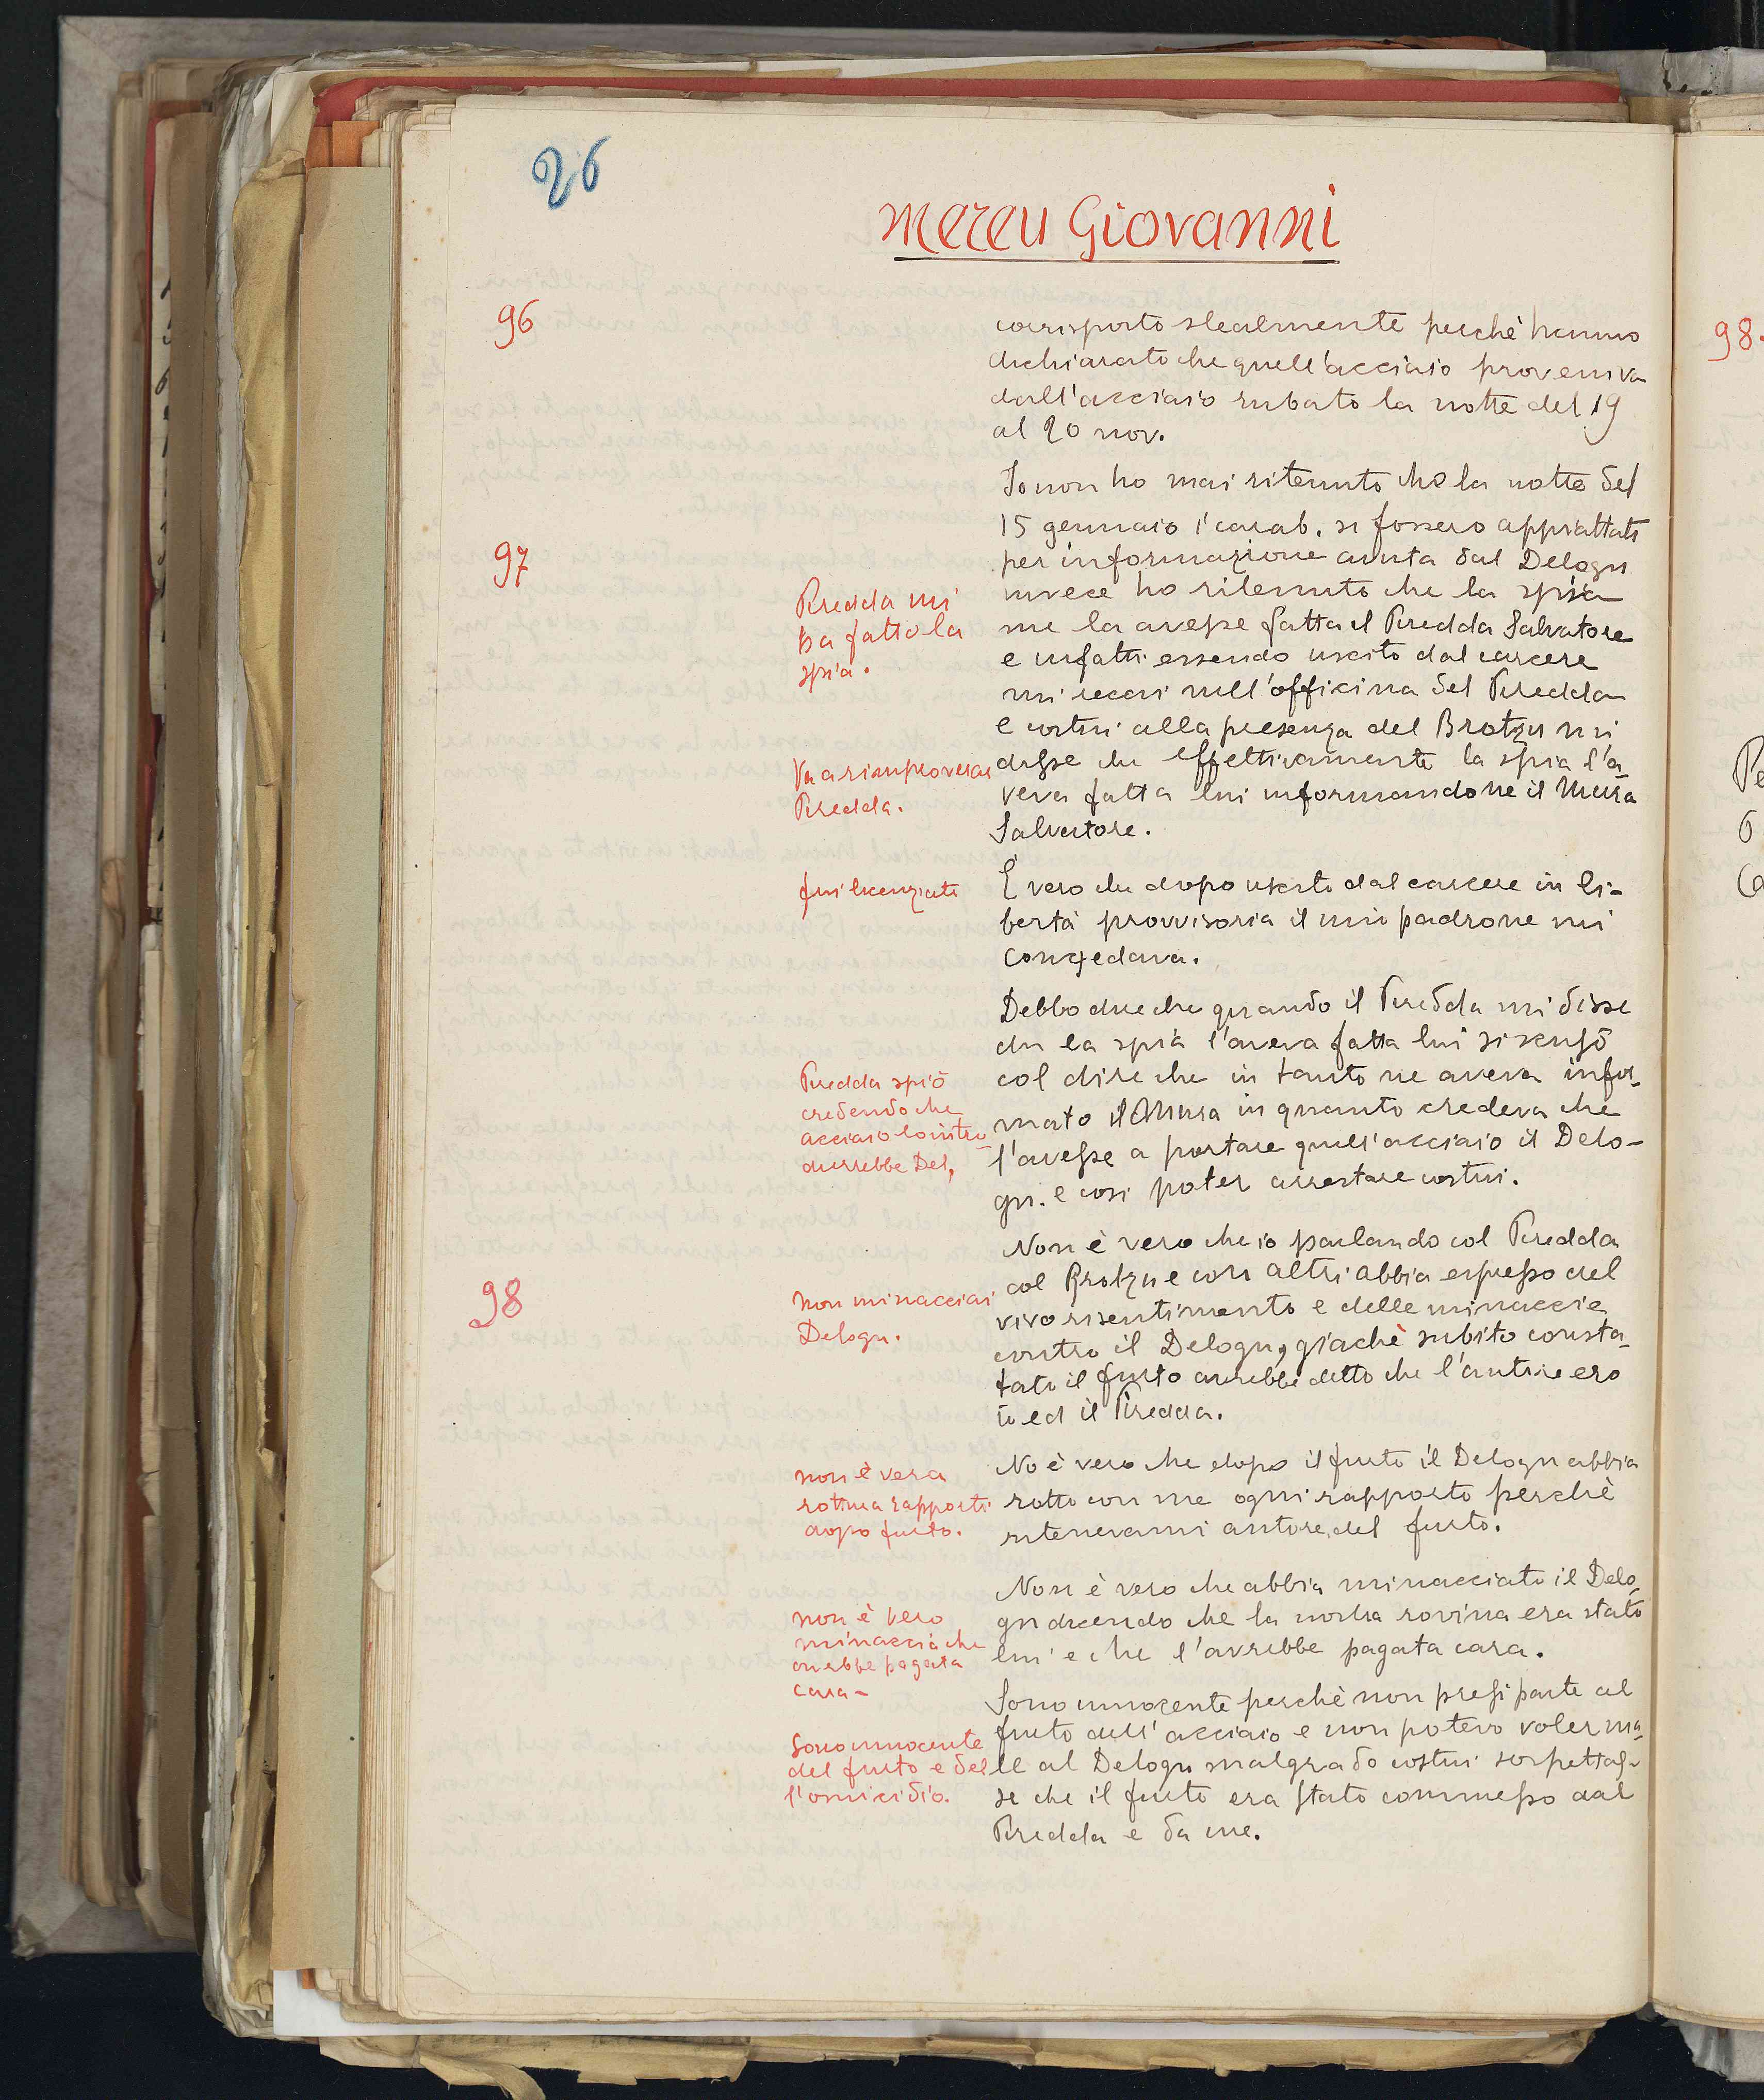 26
Mereu Giovanni
96
corrisposto slealmente perchè hanno
dichiarato che quell'acciaio proveniva
dall'acciaio rubato la notte del 19
al 20 nov.
Io non ho mai ritenuto che la notte del
15 gennaio i carab. si fossero appiattati
97
per informazione avuta dal Delogu
invece ho ritenuto che la spia
me la avesse fatta il Piredda Salvatore
e infatti essendo uscito dal carcere
mi recai nell'officina del Piredda
e costui alla presenza del Brotzu mi
disse che effettivamente la spia l'a-
veva fatta lui informandone il Mura
Salvatore.
Piredda mi
ha fatto la
spia.
Va a rimproverare
Piredda.
fui licenziato
È vero che dopo uscito dal carcere in li-
bertà provvisoria il mio padrone mi
congedava.
Debbo dire che quando il Piredda mi disse
che la spia l'aveva fatta lui si scusò
col dire che in tanto ne aveva infor-
mato il Mura in quanto credeva che
l'avesse a portare quell'acciaio il Delo-
gu. e così poter arrestare costui.
Piredda spiò
credendo che
acciaio lo intro-
durrebbe Del,
Non è vero che io parlando col Piredda
col Brotzu e con altri abbia espresso del
vivo risentimento e delle minaccie
contro il Delogu, giachè subito consta-
tato il furto avrebbe detto che l'autore ero
io ed il Piredda.
98
non minacciai
Delogu.
No è vero che dopo il furto il Delogu abbia
rotto con me ogni rapporto perchè
ritenevami autore del furto.
non è vera
rottura rapporti
dopo furto.
Non è vero che abbia minacciato il Delo-
gu dicendo che la nostra rovina era stato
lui e che l'avrebbe pagata cara.
non è vero
minaccia che
avrebbe pagata
cara-
Sono innocente perchè non presi parte al
furto dell'acciaio e non potevo voler ma-
le al Delogu malgrado costui sospettas-
se che il furto era stato commesso dal
Piredda e da me.
Sono innocente
del furto e del
l'omicidio.
98.